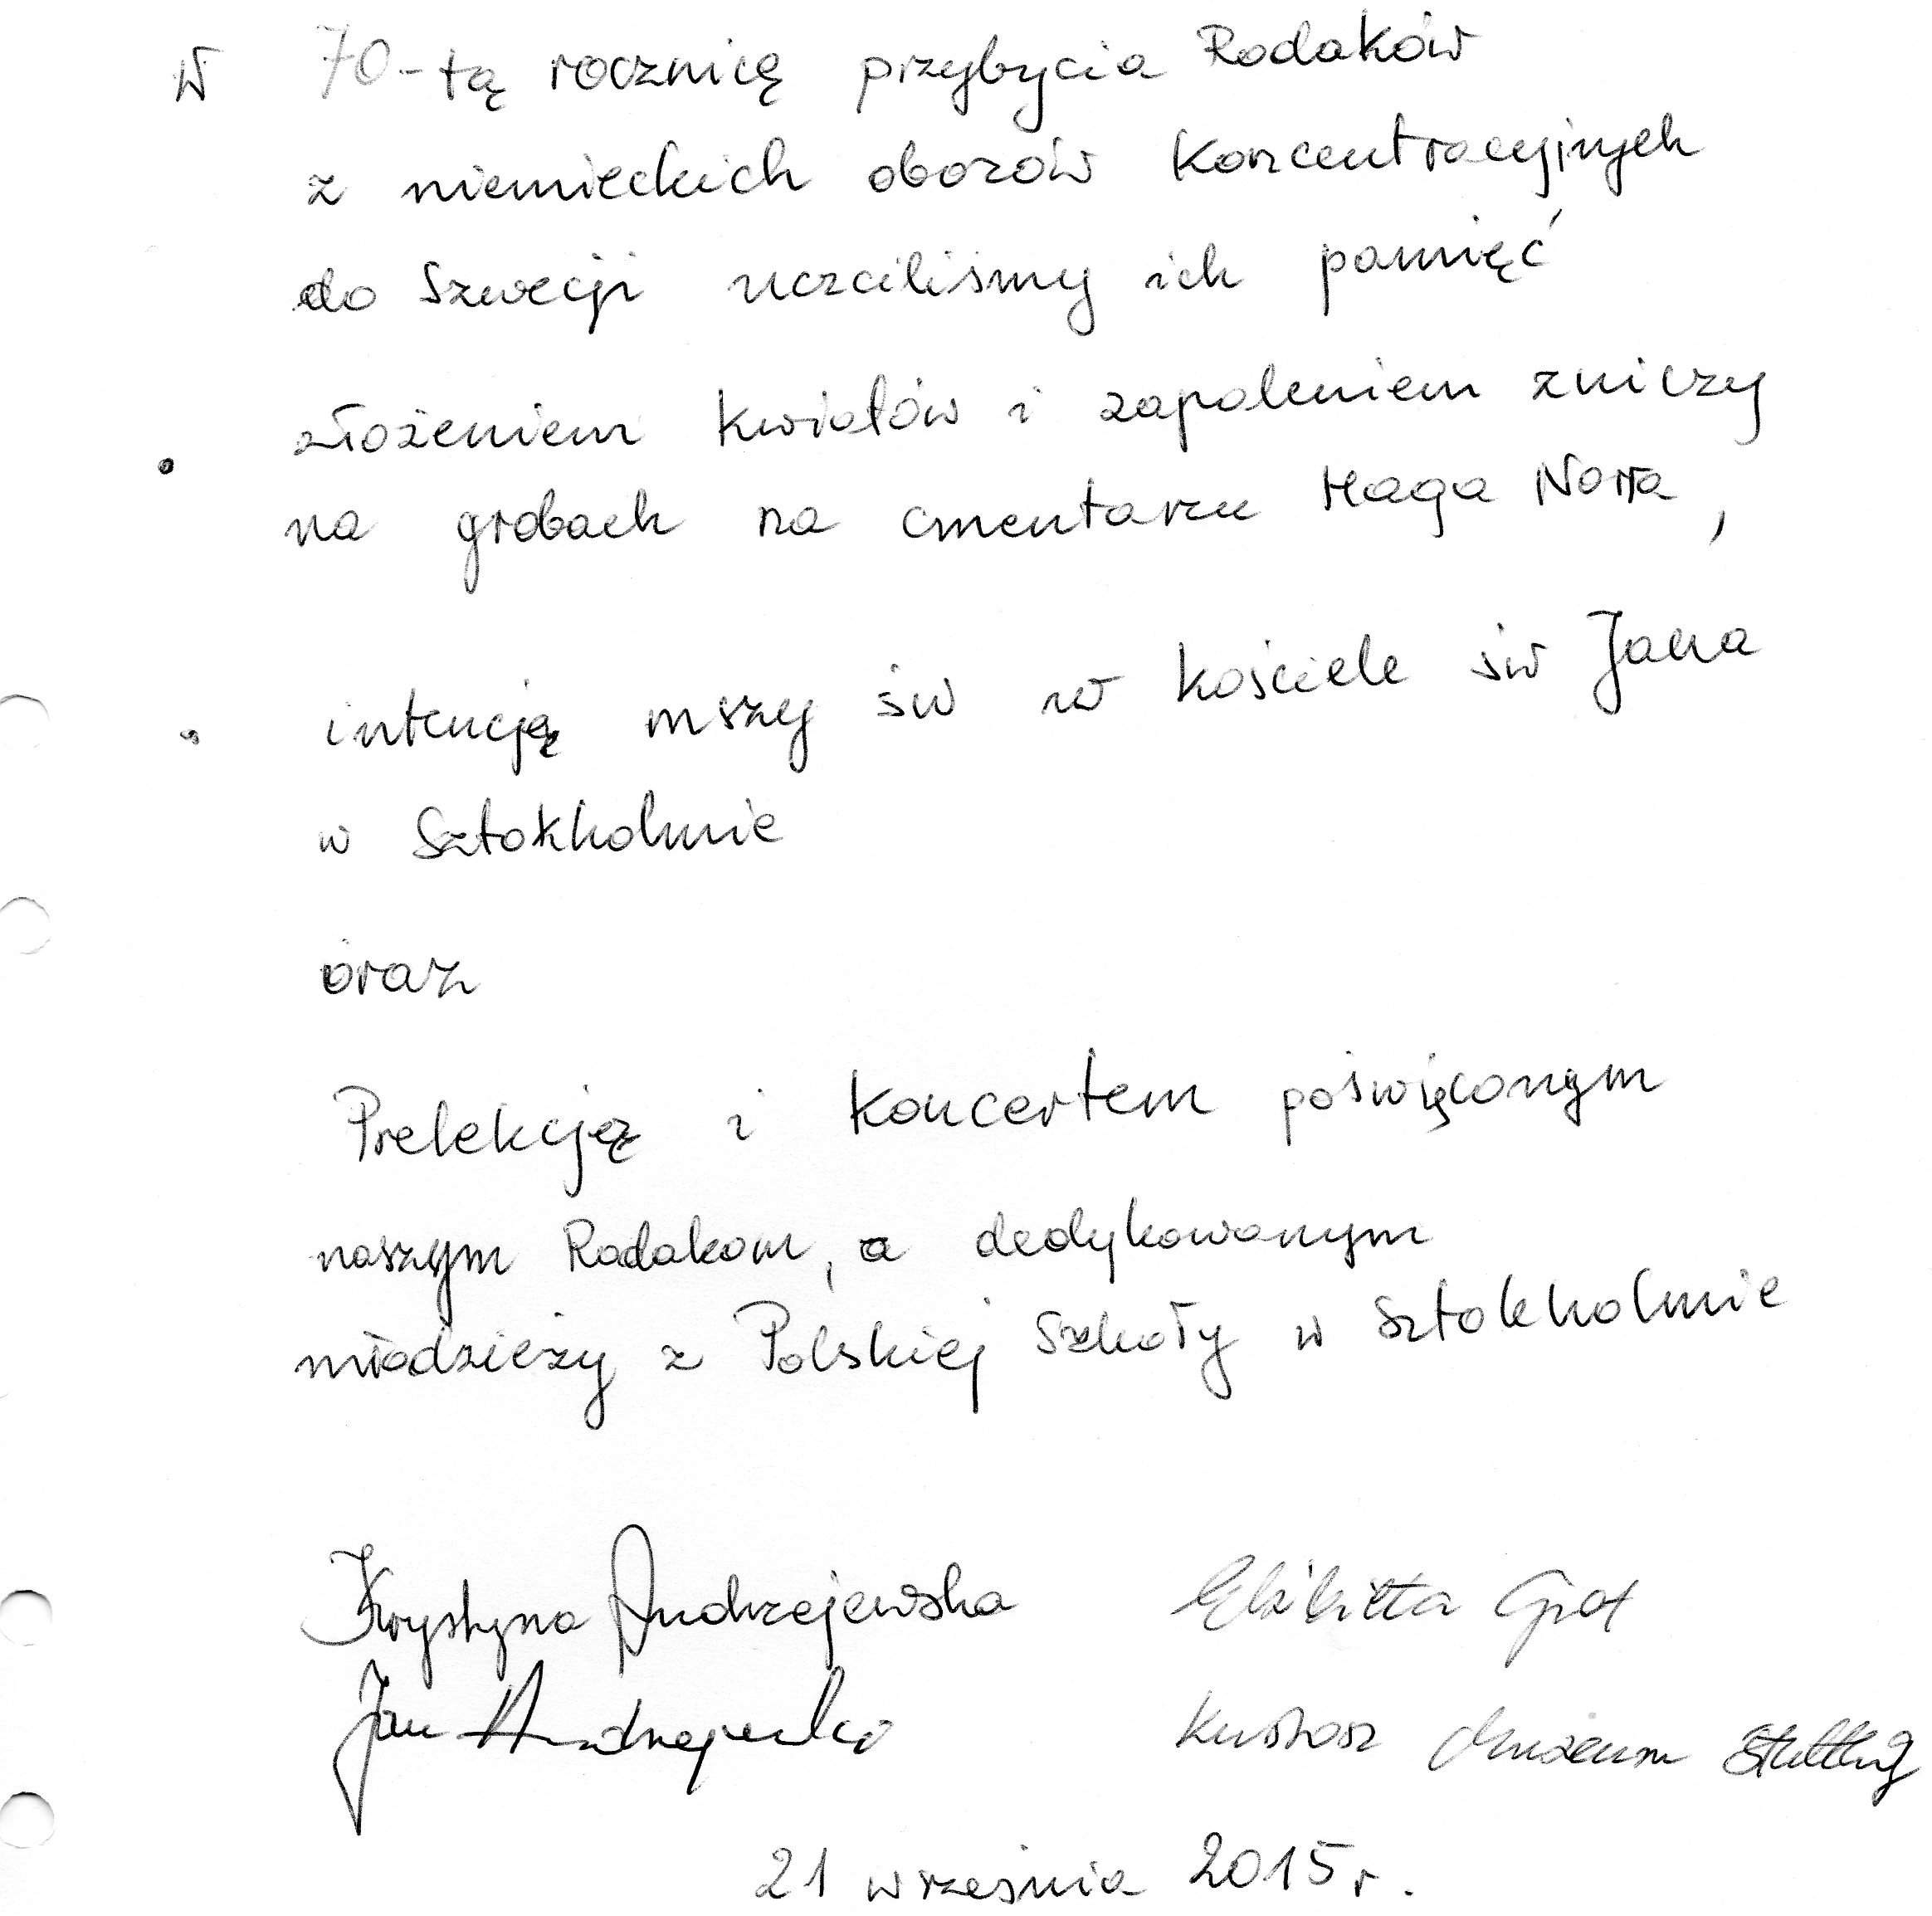 W 70-tą rocznicę przybycia Rodaków
z niemieckich obozów koncentracyjnych
do Szwecji uczciliśmy ich pamięć
złożeniem kwiatów i zapaleniem zniczy
• na grobach na cmentarzu Haga Norra,
• intencją mszy św w kościele św Jana
w Sztokholmie
oraz
Prelekcją i koncertem poświęconym
naszym Rodakom, a dedykowanym
młodzieży z Polskiej Szkoły w Sztokholmie
Krystyna Andrzejewska Elżbietta Grot
Jan Andrzejewski Kustosz Muzeum Stutthof
21 września 2015 r.